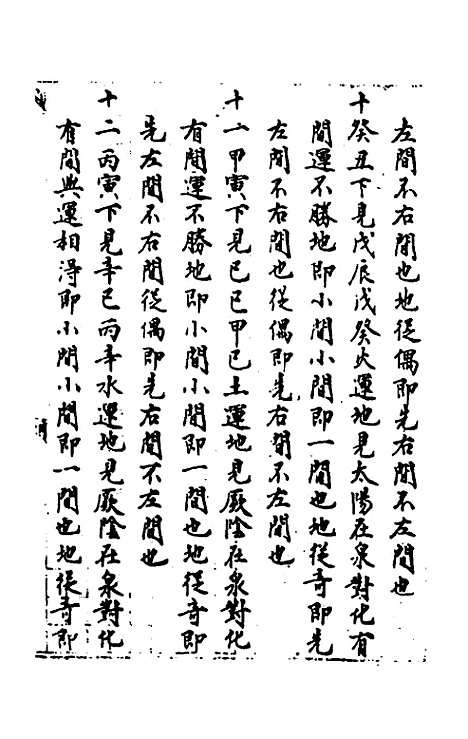 左間不右間也地從偶即先右間不左間也
十癸丑下見戊辰戊癸火運地見太陽在泉對化有
間運不勝地即小間小間即一間也地從奇即先
左間不右間也從偶即先右間不左間也
十一甲寅下見己巳甲己土運地見厥陰在泉對化
有間運不勝地即小間小間即一間也地從奇即
先左間不右間從偶即先右間不左間也
十二丙寅下見辛巳丙辛水運地見厥陰在泉對化
有間與運相得即小間小間即一間也地從奇即